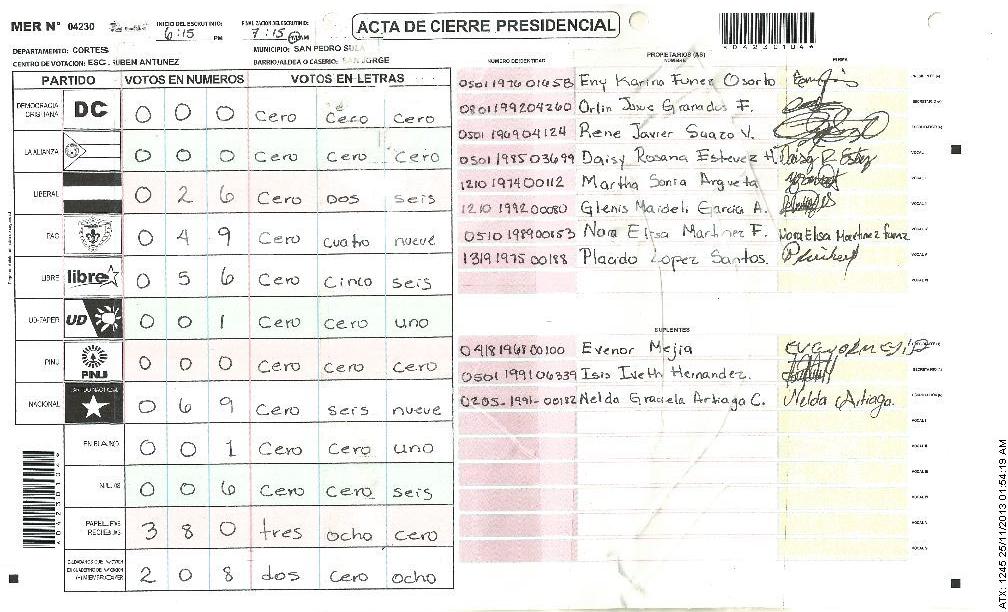 MER N° 04230
INICIO DEL ESCRUTINIO:
6:15 PM
FINALIZACION DEL ESCRUTINIO:
7:15
ACTA DE CIERRE PRESIDENCIAL
DEPARTAMENTO: CORTES
MUNICIPIO: SAN PEDRO SULA
CENTRO DE VOTACION: ESC. RUBEN ANTUNEZ
BARRIO/ALDEA O CASERIO: SAN JORGE
PARTIDO VOTOS EN NUMEROS VOTOS EN LETRAS
DEMOCRACIA CRISTIANA DC 0 0 0 Cero Cero Cero
LA ALIANZA 0 0 0 Cero Cero Cero
LIBERAL 0 2 6 Cero Dos seis
PAC 0 4 9 Cero cuatro nueve
LIBRE libre 0 5 6 Cero Cinco seis
UD-FAPER UD 0 0 1 Cero Cero uno
PINU PINU 0 0 0 Cero Cero Cero
NACIONAL 0 6 9 Cero seis nueve
EN BLANCO 0 0 1 Cero Cero uno
NULOS 0 0 6 Cero Cero seis
PAPELETAS RECIBIDAS 3 8 0 tres ocho cero
2 0 8 dos cero ocho
NUMERO DE IDENTIDAD
PROPIETARIOS (AS)
NOMBRE
FIRMA
0501197601658 Eny Karina Funez Osorto
0801199204260 Orlin Josue Granados F.
0501196904124 Rene Javier Suazo V.
0501198503699 Daisy Rosana Estevez H. Daisy R Estez
1210197400112 Martha Sonia Argueta
1210199200080 Glenis Maideli Garcia A.
0510198900153 Nora Elisa Martinez F. Nora Elisa Martinez Funez
1319197500188 Placido Lopez Santos.
SUPLENTES
0418196800100 Evenor Mejia EVENOR MEJIA
0501199106339 Isis Iveth Hernandez.
0205-1991-00182 Nelda Graciela Artiaga C. Nelda Artiaga.
ATX: 1245 25/11/2013 01:54:19 AM